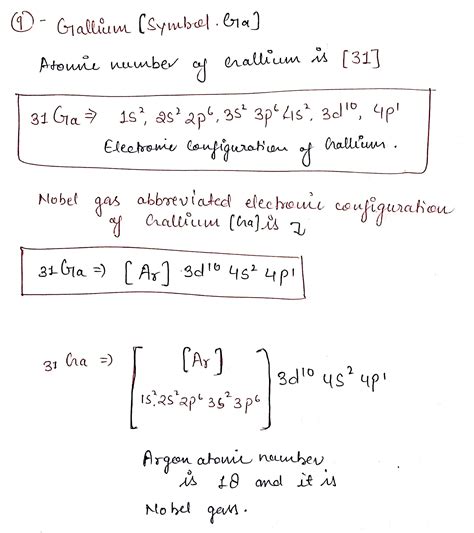 (9) - Gallium [Symbol. Ga]
Atomic number of Gallium is [31]
31 Ga ⇒ 1s², 2s² 2p⁶, 3s² 3p⁶ 4s², 3d¹⁰, 4p¹
Electronic Configuration of Gallium.
Nobel gas abbreviated electronic configuration
of Gallium [Ga] is
31 Ga ⇒ [Ar] 3d¹⁰ 4s² 4p¹
31 Ga ⇒ [ [Ar] ] 3d¹⁰ 4s² 4p¹
1s², 2s² 2p⁶ 3s² 3p⁶
Argon atomic number
is 18 and it is
Nobel gas.